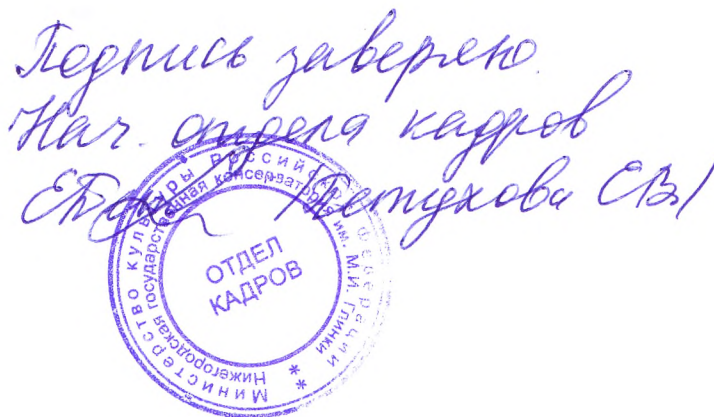 Подпись заверяю
Нач. отдела кадров
Петухова ЕВ/
Министерство культуры Российской Федерации
Нижегородская государственная консерватория им. М.И. Глинки
ОТДЕЛ
КАДРОВ